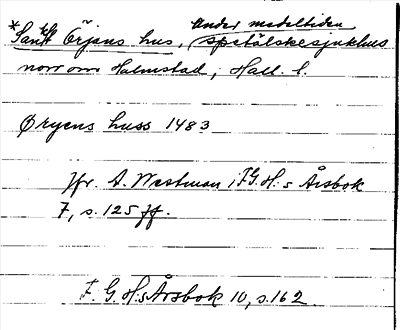 under medeltiden
*Sankt Örjans hus, spetälskesjukhus
norr om Halmstad, Hall. l.
Øryens huss 1483
Jfr. A. Westman i F.G.H:s Årsbok
7, s. 125 ff.
F. G. H:s Årsbok 10, s. 162.